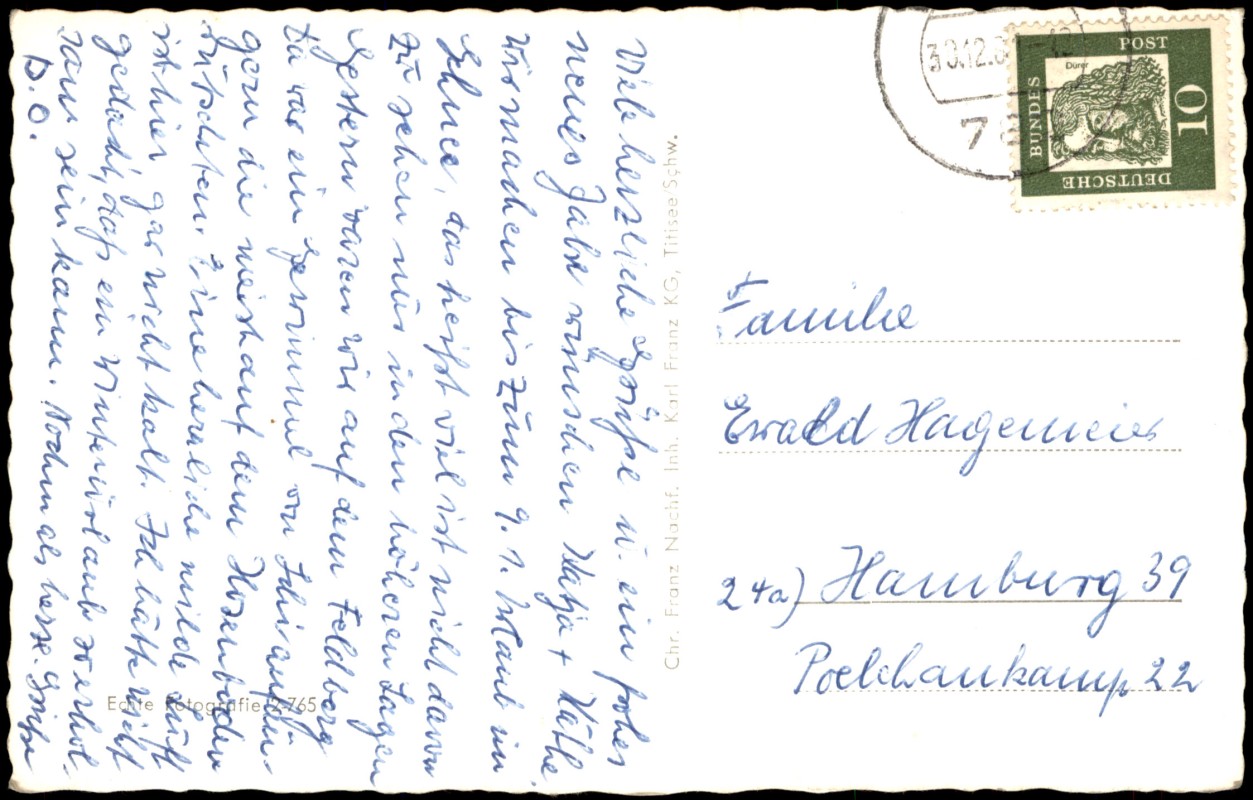 Viele herzliche Grüße u. ein frohes
neues Jahr wünschen Katja + Käthe.
Wir machen bis zum 9. 1. Urlaub im
Schnee, das heißt viel ist nicht davon
zu sehen nur in den höheren Lagen
Gestern waren wir auf dem Feldberg
da war ein Gewimmel von Schianfän-
gern die meist auf dem Hosenboden
rutschten. Eine herrliche milde Luft
ist hier gar nicht kalt. Ich hätte nicht
gedacht, daß ein Winterurlaub so erhol-
sam sein kann. Nochmals herze. Grüße
D. O.
Echte Fotografie 2765
Chr. Franz Nachf. Inh. Karl Franz KG, Titisee/Schw.
30.12.6
78
DEUTSCHE
BUNDES
POST
Dürer
10
Familie
Ewald Hagemeier
24a) Hamburg 39
Poelchaukamp 22